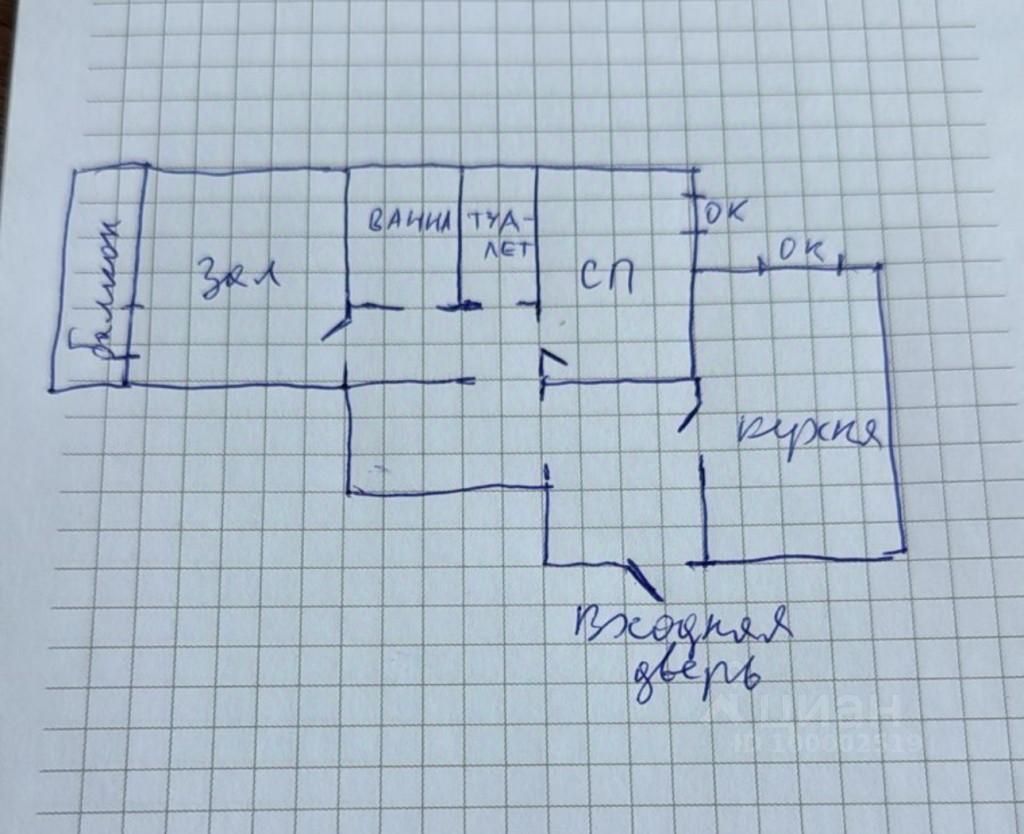 балкон
Зал
ВАННА
ТУА-
ЛЕТ
СП
ОК
ОК
кухня
Входная
дверь
циан